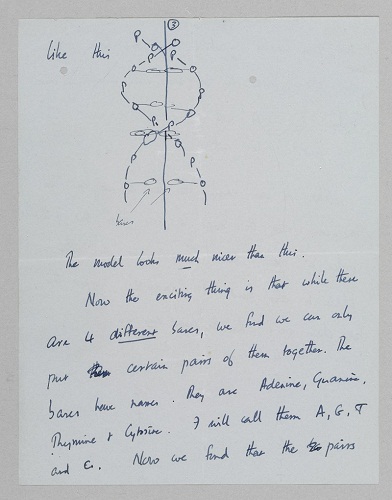 ③
like this
P P
P
P P
P P
P P
bases
The model looks much nicer than this.
Now the exciting thing is that while there
are 4 different bases, we find we can only
put certain pairs of them together. The
bases have names. They are Adenine, Guanine,
Thymine & Cytosine. I will call them A, G, T
and C. Now we find that the pairs